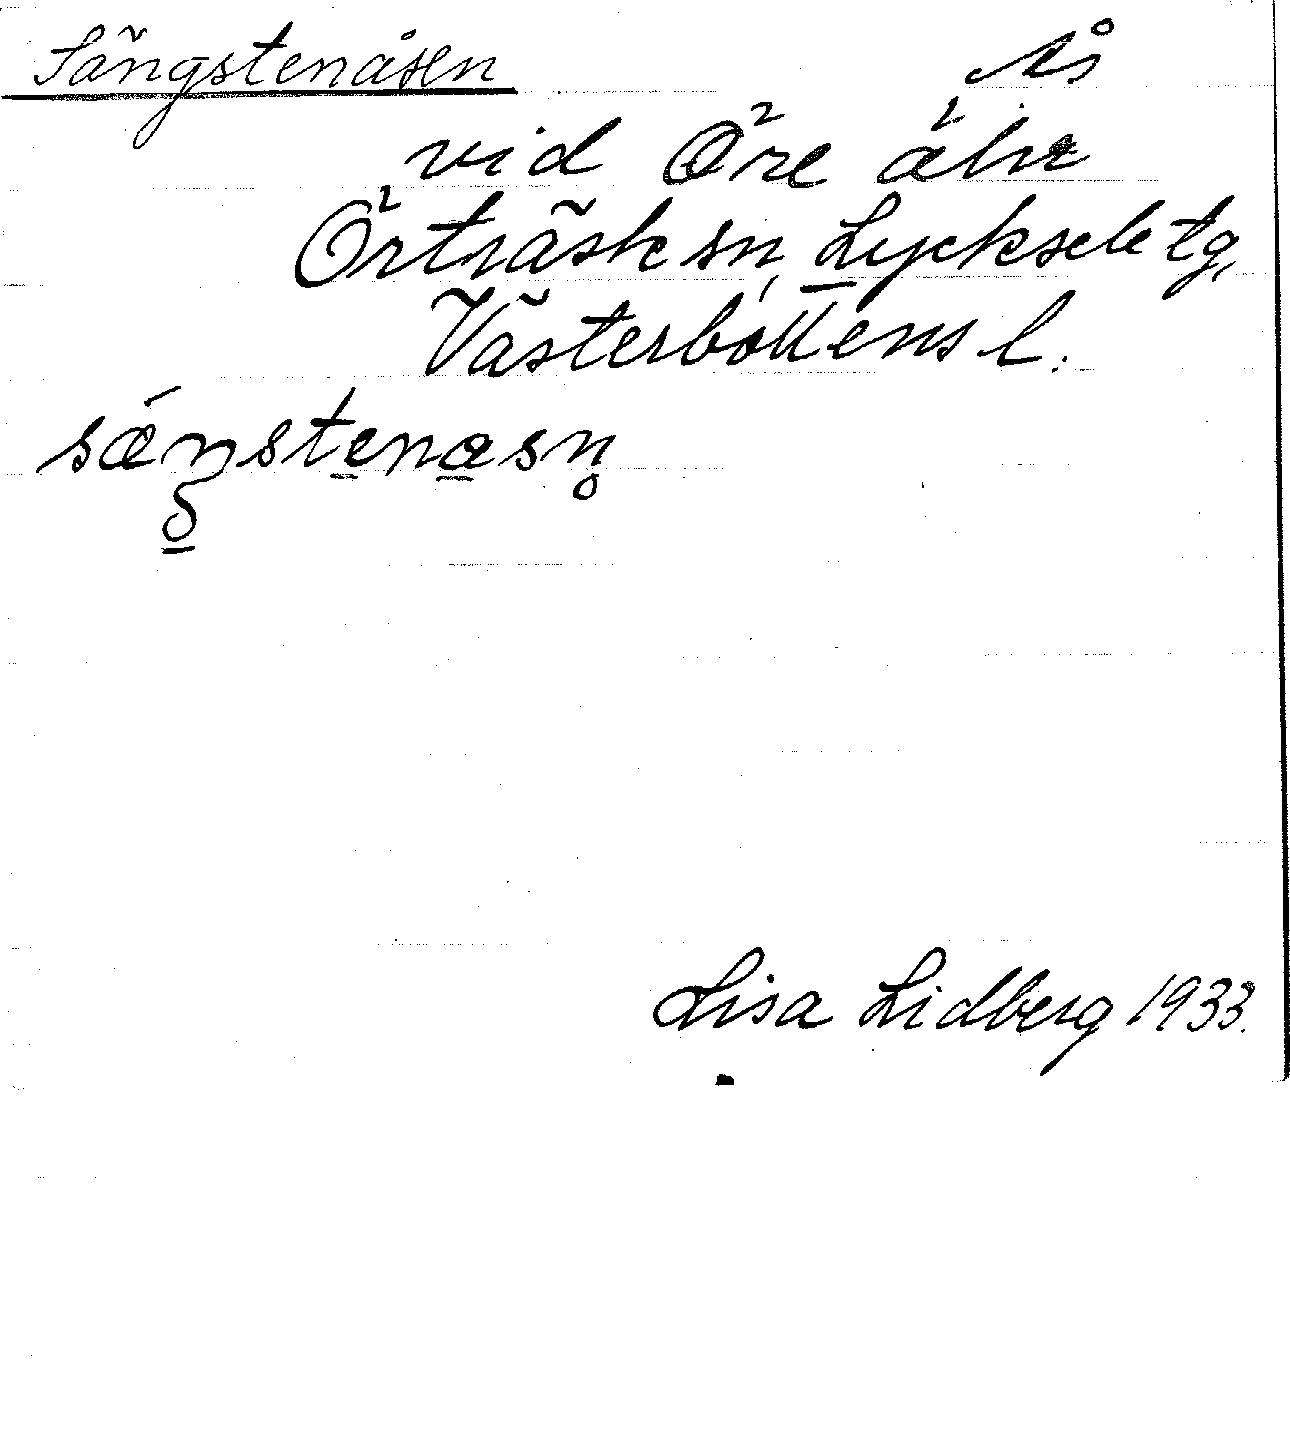 Sängstenåsen Ås
vid Öre älv
Örträsk sn, Lycksele tg,
Västerbottens l.
sǽŋstenasn̥
Lisa Lidberg 1933.